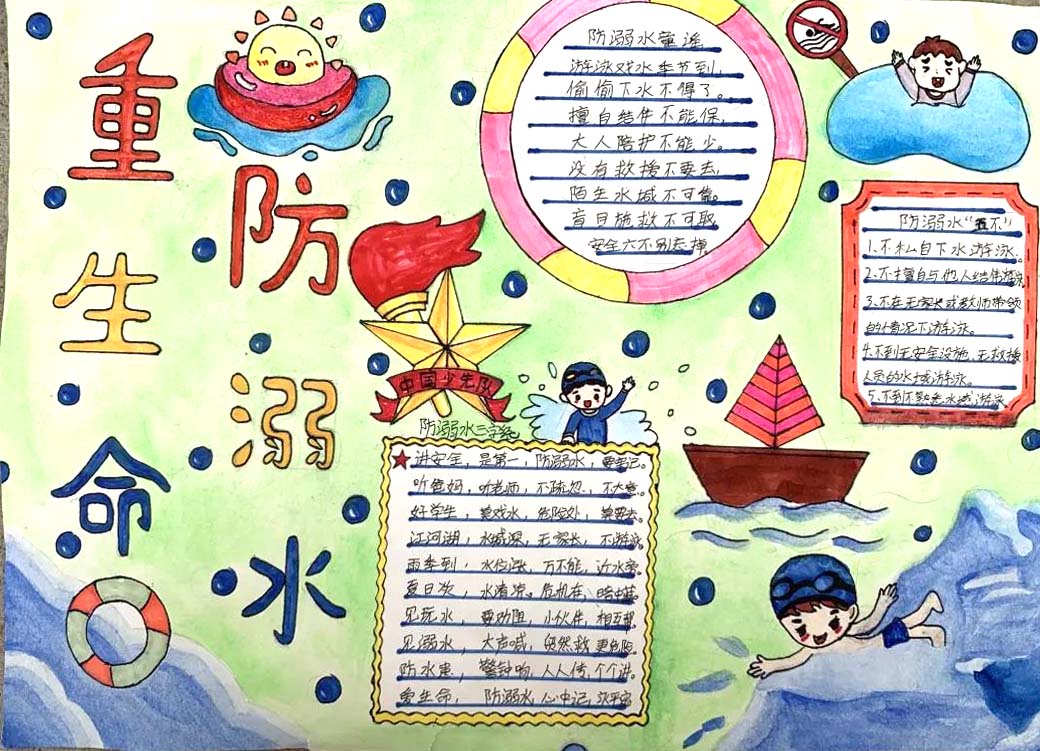 重生命
防溺水
防溺水童谣
游泳戏水季节到,
偷偷下水不得了。
擅自结伴不能保,
大人陪护不能少。
没有救援不要去,
陌生水域不可靠。
盲目施救不可取,
安全六不别去掉。
防溺水“五不”
1.不私自下水游泳.
2.不擅自与他人结伴游泳.
3.不在无家长或教师带领
的情况下游泳.
4.不到无安全设施、无救援
人员的水域游泳.
5.不到不熟悉水域游泳
中国少先队
防溺水三字经
讲安全,是第一,防溺水,要牢记。
听爸妈,听老师,不疏忽,不大意。
好学生,莫戏水,危险处,莫要去。
江河湖,水域深,无家长,不游泳
雨季到,水位涨,万不能,近水旁。
夏日炎,水清凉。危机在,暗中藏
见玩水,要劝阻,小伙伴,相互帮
见溺水,大声喊,贸然救更危险
防水患,警钟响,人人传,个个讲。
爱生命,防溺水,心中记,永平安